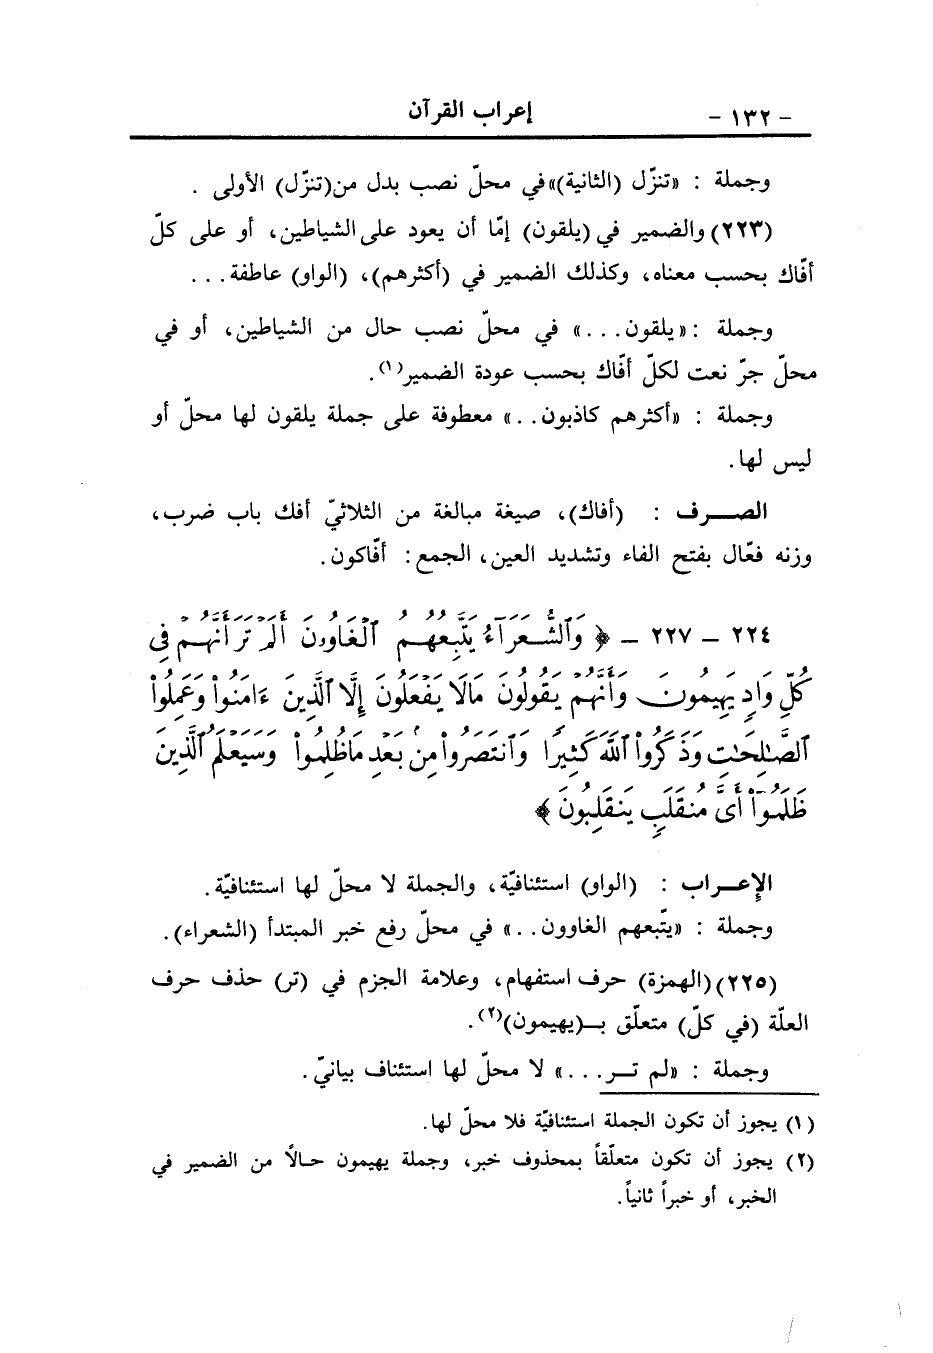 - ١٣٢ -
إعراب القرآن
وجملة : «تنزّل (الثانية)» في محلّ نصب بدل من (تنزّل) الأولى .
(٢٢٣) والضمير في (يلقون) إمّا أن يعود على الشياطين، أو على كلّ
أفّاك بحسب معناه، وكذلك الضمير في (أكثرهم)، (الواو) عاطفة . . .
وجملة : «يلقون . . .» في محلّ نصب حال من الشياطين، أو في
محلّ جرّ نعت لكلّ أفّاك بحسب عودة الضمير(١).
وجملة : «أكثرهم كاذبون . .» معطوفة على جملة يلقون لها محلّ أو
ليس لها.
الصـــرف : (أفاك)، صيغة مبالغة من الثلاثيّ أفك باب ضرب،
وزنه فعّال بفتح الفاء وتشديد العين، الجمع : أفّاكون.
٢٢٤ - ٢٢٧ - ﴿ وَٱلشُّعَرَآءُ يَتَّبِعُهُمُ ٱلْغَاوُۥنَ أَلَمْ تَرَ أَنَّهُمْ فِى
كُلِّ وَادٍ يَهِيمُونَ وَأَنَّهُمْ يَقُولُونَ مَالَا يَفْعَلُونَ إِلَّا ٱلَّذِينَ ءَامَنُواْ وَعَمِلُواْ
ٱلصَّٰلِحَٰتِ وَذَكَرُواْ ٱللَّهَ كَثِيرًا وَٱنتَصَرُواْ مِنۢ بَعْدِ مَاظُلِمُواْ وَسَيَعْلَمُ ٱلَّذِينَ
ظَلَمُوٓاْ أَىَّ مُنقَلَبٍ يَنقَلِبُونَ ﴾
الإعــراب : (الواو) استئنافيّة، والجملة لا محلّ لها استئنافيّة .
وجملة : «يتّبعهم الغاوون . .» في محلّ رفع خبر المبتدأ (الشعراء).
(٢٢٥) (الهمزة) حرف استفهام، وعلامة الجزم في (تر) حذف حرف
العلّة (في كلّ) متعلّق بـ(يهيمون)(٢).
وجملة : «لم تـــر . . .» لا محلّ لها استئناف بيانيّ .
(١) يجوز أن تكون الجملة استئنافيّة فلا محلّ لها.
(٢) يجوز أن تكون متعلّقاً بمحذوف خبر، وجملة يهيمون حـالاً من الضمير في
الخبر، أو خبراً ثانياً.